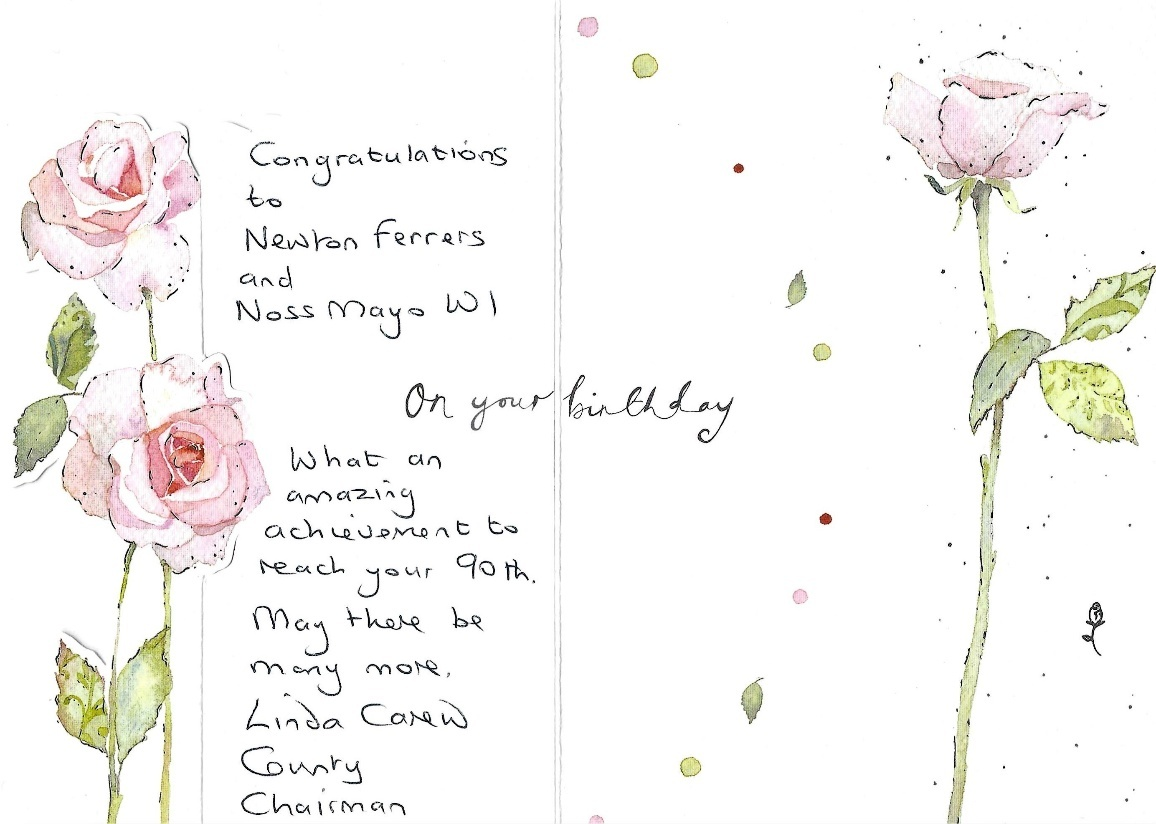 Congratulations
to
Newton Ferrers
and
Noss Mayo WI
On your birthday
What an
amazing
achievement to
reach your 90th.
May there be
many more.
Linda Carew
County
Chairman